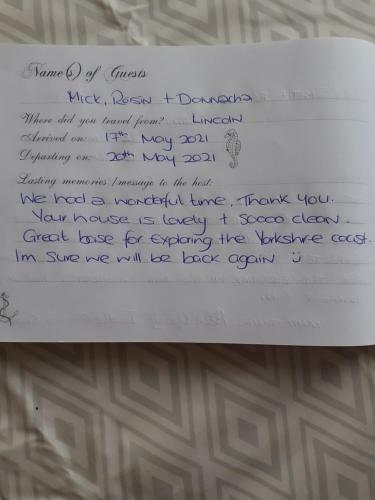 Name(s) of Guests
Mick, Rosin + Donnacha
Where did you travel from? LINCOLN
Arrived on: 17th May 2021
Departing on: 20th May 2021
Lasting memories / message to the host:
We had a wonderful time, Thank you.
Your house is lovely + soooo clean.
Great base for exploring the Yorkshire coast.
Im sure we will be back again ü